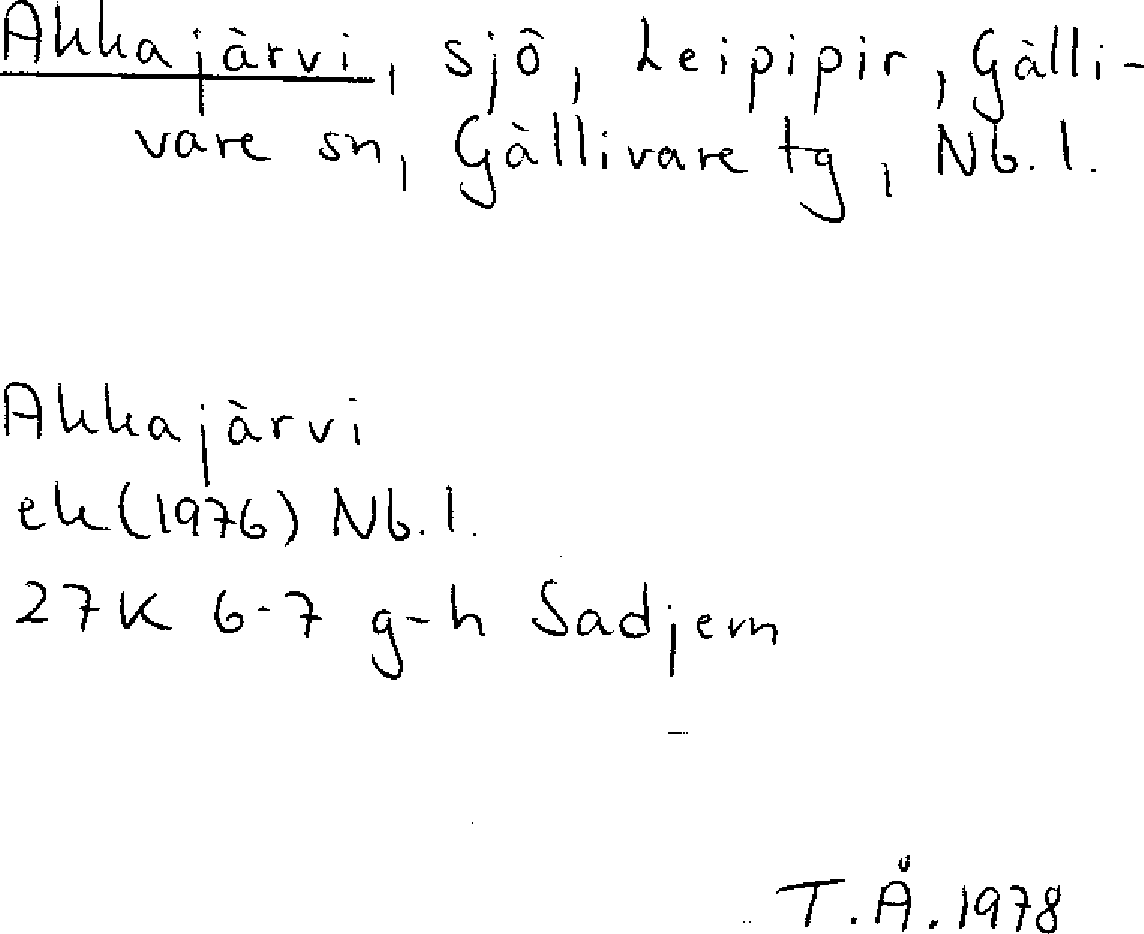 Akkajärvi, sjö, Leipipir, Gälli-
vare sn, Gällivare tg, Nb. l.
Akkajärvi
ek (1976) Nb. l.
27K 6-7 g-h Sadjem
T. Å. 1978